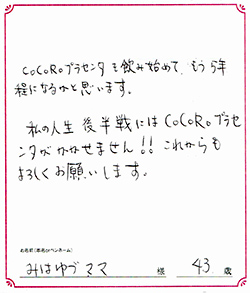 CoCoRoプラセンタを飲み始めて、もう5年
程になるかと思います。
私の人生後半戦にはCoCoRoプラセ
ンタがかかせません!!これからも
よろしくお願いします。
お名前(本名orペンネーム)
みはゆづママ 様 43 歳